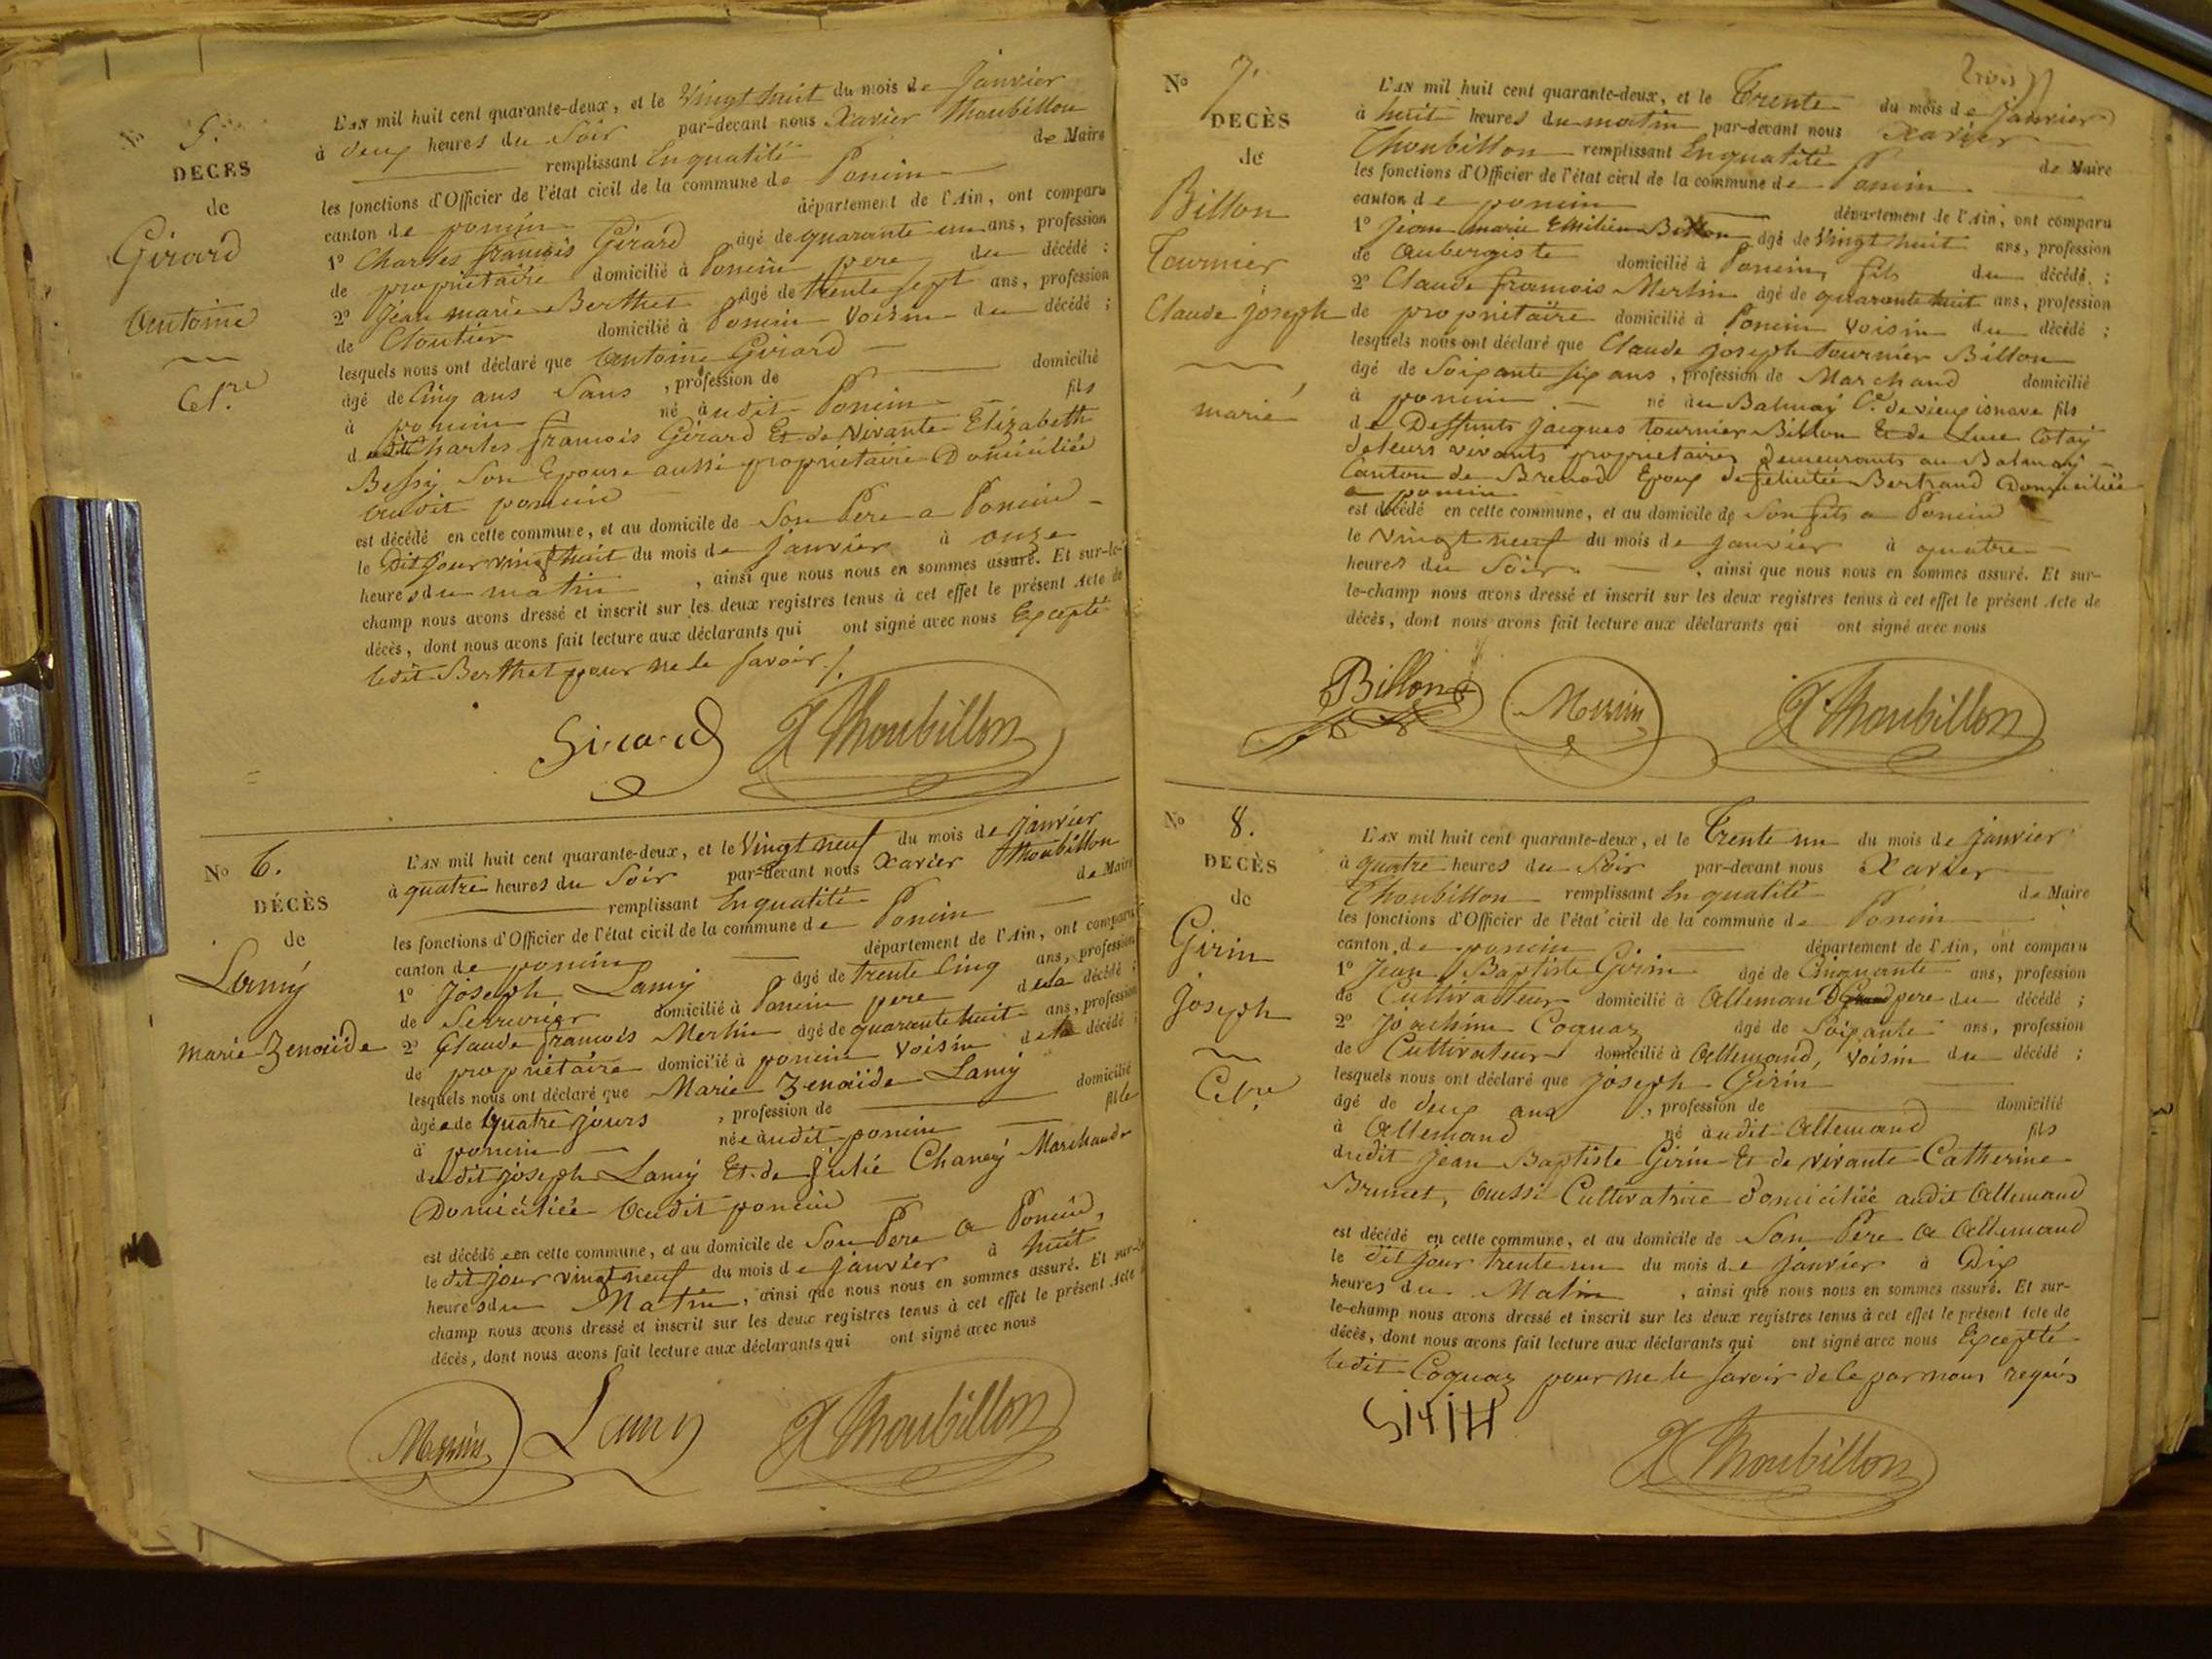 No 5.
DECES
de
Girard
Antoine
Cel.re
L'AN mil huit cent quarante-deux, et le Vingt huit du mois de Janvier
à deux heures du Soir par-devant nous Xavier Thoubillon
remplissant En qualité de Maire
les fonctions d'Officier de l'état civil de la commune de Poncin
canton de poncin département de l'Ain, ont comparu
1º Charles françois Girard âgé de quarante un ans, profession
de propriétaire domicilié à Poncin pere du décédé ;
2º Jean marie Berthet âgé de trente sept ans, profession
de Cloutier domicilié à Poncin Voisin du décédé ;
lesquels nous ont déclaré que Antoine Girard
âgé de Cinq ans Sans , profession de domicilié
à poncin né audit Poncin fils
dudit Charles françois Girard Et de Vivante Elizabeth
Bessy Son Epouse aussi propriétaire Domiciliée
audit poncin
est décédé en cette commune, et au domicile de Son Pere a Poncin
le Dit jour vingt huit du mois de janvier à onze
heures du matin , ainsi que nous nous en sommes assuré. Et sur-le-
champ nous avons dressé et inscrit sur les deux registres tenus à cet effet le présent Acte de
décès, dont nous avons fait lecture aux déclarants qui ont signé avec nous Excepté
ledit Berthet pour ne le savoir ./.
Girard X Thoubillon
No 6.
DÉCÈS
de
Lamy
marie Zenaïde
L'AN mil huit cent quarante-deux, et le Vingt neuf du mois de janvier
à quatre heures du Soir par-devant nous Xavier Thoubillon
remplissant En qualité de Maire
les fonctions d'Officier de l'état civil de la commune de Poncin
canton de poncin département de l'Ain, ont comparu
1º Joseph Lamy âgé de trente Cinq ans, profession
de Serrurier domicilié à Poncin pere de la décédé ;
2º Claude françois Merlin âgé de quarante huit ans, profession
de propriétaire domicilié à poncin Voisin de la décédé ;
lesquels nous ont déclaré que Marie Zenaïde Lamy
âgée de quatre jours , profession de domicilié
à poncin née audit poncin fille
dudit joseph Lamy Et de Julie Chaney Marchande
Domiciliée Audit poncin
est décédée en cette commune, et au domicile de Son Pere a Poncin,
le dit jour vingt neuf du mois de janvier à huit
heures du Matin , ainsi que nous nous en sommes assuré. Et sur-le-
champ nous avons dressé et inscrit sur les deux registres tenus à cet effet le présent Acte
décès, dont nous avons fait lecture aux déclarants qui ont signé avec nous
Merlin Lamy X Thoubillon
No 7.
DECÈS
de
Billon
Tournier
Claude joseph
marié
L'AN mil huit cent quarante-deux, et le Trente du mois de janvier
à huit heures du matin par-devant nous Xavier
Thoubillon remplissant En qualité de Maire
les fonctions d'Officier de l'état civil de la commune de Poncin
canton de poncin département de l'Ain, ont comparu
1º Jean marie Emilien Billon âgé de Vingt huit ans, profession
de Aubergiste domicilié à Poncin, fils du décédé ;
2º Claude françois Merlin âgé de quarante huit ans, profession
de propriétaire domicilié à Poncin Voisin du décédé ;
lesquels nous ont déclaré que Claude joseph tournier Billon
âgé de Soixante six ans , profession de Marchand domicilié
à poncin né au Balmay C.e de vieux isnave fils
de Deffunts jacques tournier Billon Et de Luce Cotay
de leurs vivants propriétaires demeurants au Balmay
Canton de Brenod Epoux de félicitée Bertrand Domiciliée
a poncin
est décédé en cette commune, et au domicile de Son fils a Poncin
le Vingt neuf du mois de janvier à quatre
heures du Soir , ainsi que nous nous en sommes assuré. Et sur-
le-champ nous avons dressé et inscrit sur les deux registres tenus à cet effet le présent Acte de
décès, dont nous avons fait lecture aux déclarants qui ont signé avec nous
Billon Merlin X Thoubillon
No 8.
DÉCÈS
de
Girin
Joseph
Cel.re
L'AN mil huit cent quarante-deux, et le Trente un du mois de janvier
à quatre heures du Soir par-devant nous Xavier
Thoubillon remplissant En qualité de Maire
les fonctions d'Officier de l'état civil de la commune de Poncin
canton de poncin département de l'Ain, ont comparu
1º Jean Baptiste Girin âgé de Cinquante ans, profession
de Cultivateur domicilié à Allemand pere du décédé ;
2º Joachim Coquaz âgé de Soixante ans, profession
de Cultivateur domicilié à Allemand, Voisin du décédé ;
lesquels nous ont déclaré que Joseph Girin
âgé de deux ans , profession de domicilié
à Allemand né audit Allemand fils
dudit Jean Baptiste Girin Et de vivante Catherine
Brunet, Aussi Cultivatrice domiciliée audit Allemand
est décédé en cette commune, et au domicile de Son Pere a Allemand
le dit jour trente un du mois de janvier à Dix
heures du Matin , ainsi que nous nous en sommes assuré. Et sur-
le-champ nous avons dressé et inscrit sur les deux registres tenus à cet effet le présent Acte de
décès, dont nous avons fait lecture aux déclarants qui ont signé avec nous Excepté
ledit Coquaz pour ne le savoir de ce par nous requis
X Thoubillon